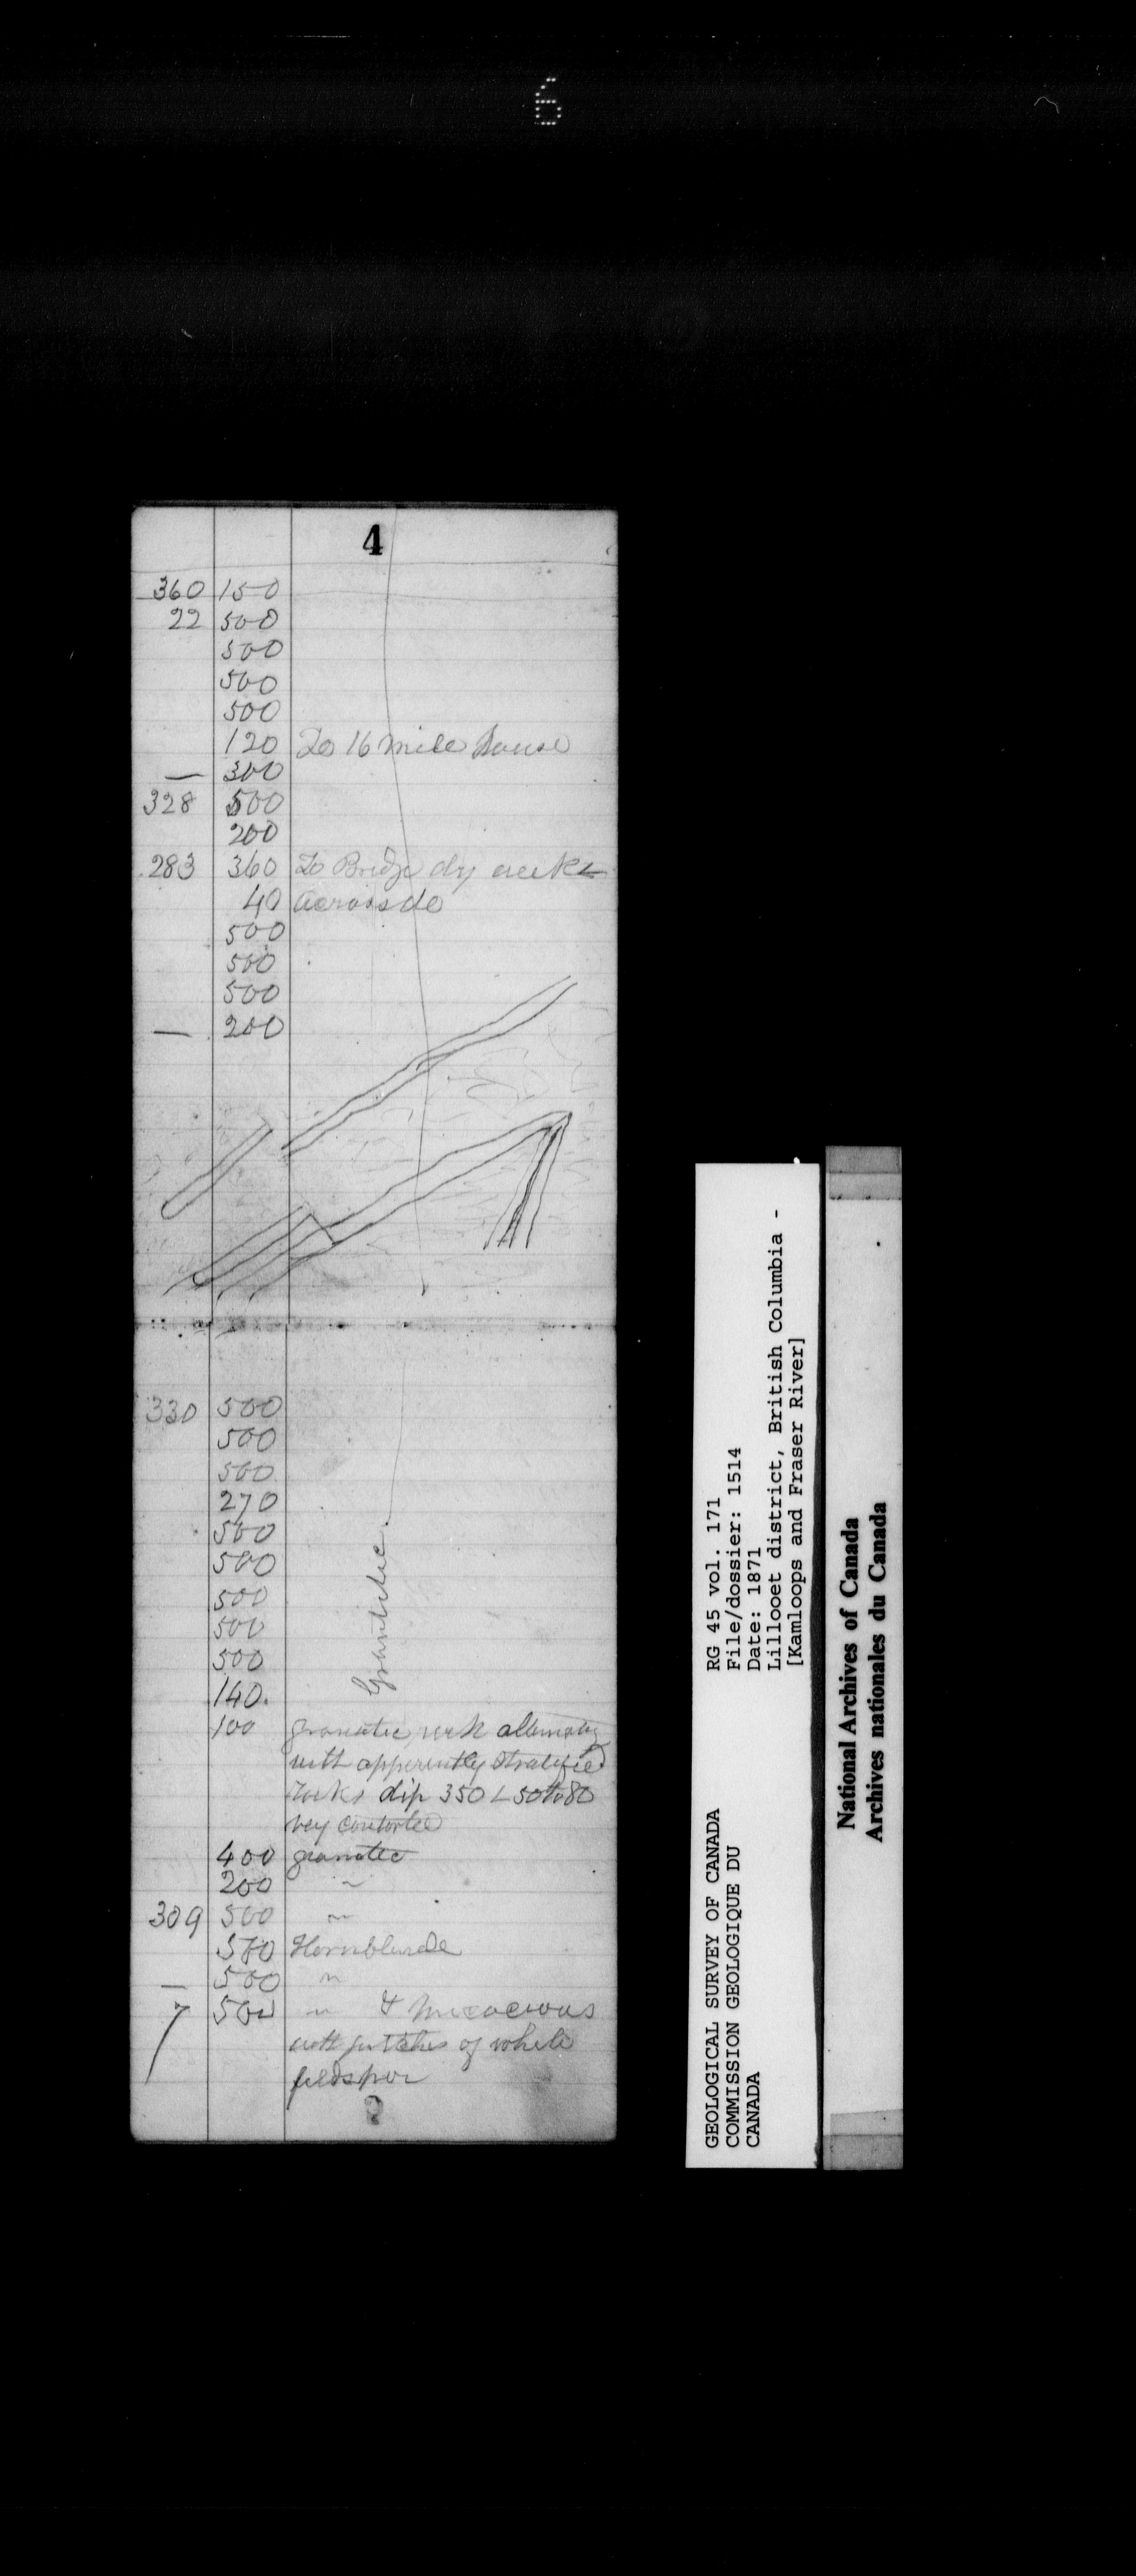 6
4
360 150
22 500
500
500
500
120 To 16 mile House
— 300
328 500
200
283 360 To Bridge dry creek
40 across do
500
500
500
— 200
330 500
500
500
270
500
500
500
500
500
140.
Granitic
100 granitic rock alternating
with apparently stratified
rocks dip 350 ∠ 50 to 80
very contorted
400 granitic
200 "
309 500 "
500 Hornblende
— 500 "
7 500 " & micaceous
with patches of white
feldspar
GEOLOGICAL SURVEY OF CANADA
COMMISSION GEOLOGIQUE DU
CANADA
RG 45 vol. 171
File/dossier: 1514
Date: 1871
Lillooet district, British Columbia -
[Kamloops and Fraser River]
National Archives of Canada
Archives nationales du Canada